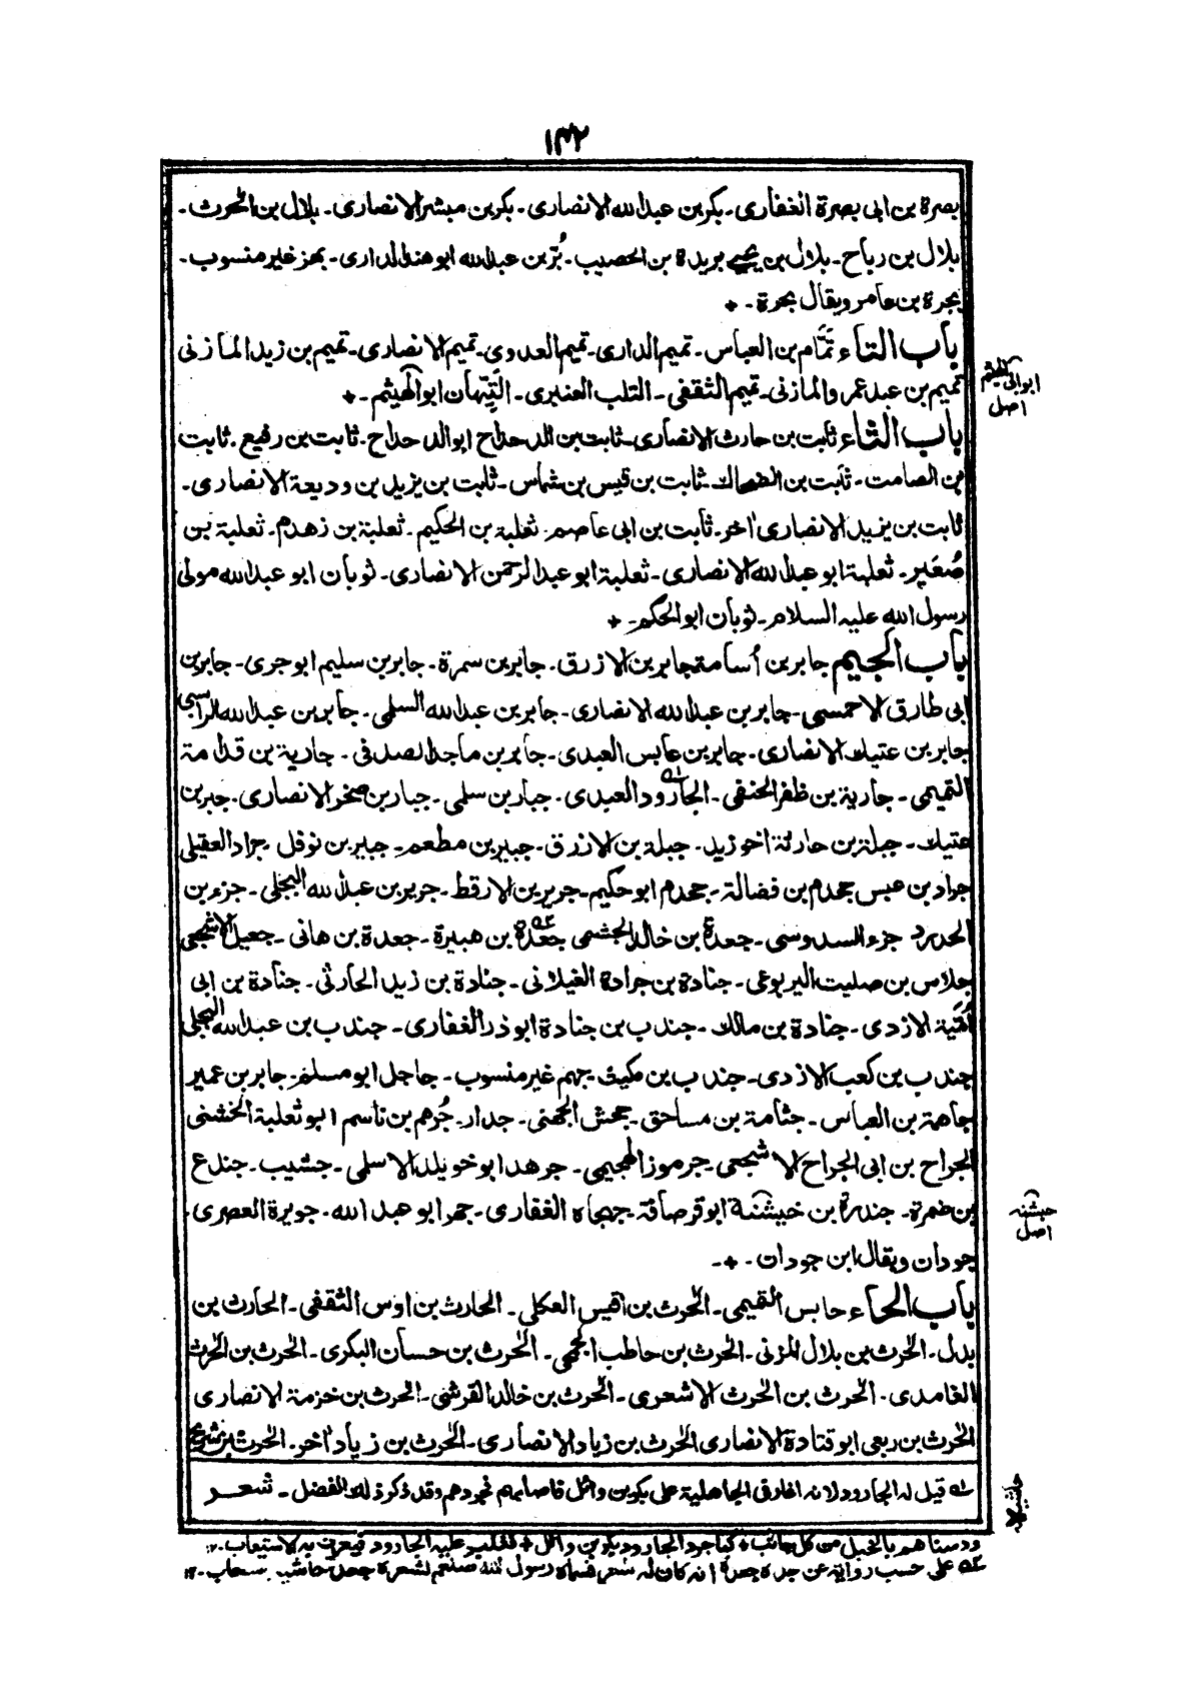 ١٤٢
بصرة بن ابى بصرة الغفارى۔ بكر بن عبد الله الانصارى۔ بكر بن مبشر الانصارى۔ بلال بن الحٰرث۔
بلال بن رباح۔ بلال بن يحيے بريدة بن الحصيب۔ بُرّ بن عبد الله ابو هند الدارى۔ بهز غير منسوب۔
بجرة بن عامر ويقال بحرة۔ ٭
باب التاء تمّام بن العباس۔ تميم الدارى۔ تميم العدوى۔ تميم الانصارى۔ تميم بن زيد المازنى
تميم بن عبد عمرو المازنى۔ تميم الثقفى۔ التلب العنبرى۔ التَّيِّهان ابو الهيثم۔ ٭
ابو ابى الهيثم
اصل
باب الثاء ثابت بن حارث الانصارى۔ ثابت بن الدحداح ابو الدحداح۔ ثابت بن رفيع۔ ثابت
بن الصامت۔ ثابت بن الضحاك۔ ثابت بن قيس بن شماس۔ ثابت بن يزيد بن وديعة الانصارى۔
ثابت بن يزيد الانصارى اٰخر۔ ثابت بن ابى عاصم۔ ثعلبة بن الحكيم۔ ثعلبة بن زهدم۔ ثعلبة بن
صُعَير۔ ثعلبة ابو عبد الله الانصارى۔ ثعلبة ابو عبد الرحمن الانصارى۔ ثوبان ابو عبد الله مولى
رسول الله عليه السلام۔ ثوبان ابو الحكم۔ ٭
باب الجيم جابر بن أسامة جابر بن الازرق۔ جابر بن سمرة۔ جابر بن سليم ابو جرى۔ جابر بن
ابى طارق الاحمسى۔ جابر بن عبد الله الانصارى۔ جابر بن عبد الله السلمى۔ جابر بن عبد الله الراسبى
جابر بن عتيك الانصارى۔ جابر بن عابس العبدى۔ جابر بن ماجد الصدفى۔ جارية بن قدامة
التميمى۔ جارية بن ظفر الحنفى۔ الجارود العبدى۔ جبار بن سلمى۔ جبار بن صخر الانصارى۔ جبر بن
عتيك۔ جبلة بن حارثة اخو زيد۔ جبلة بن الازرق۔ جبير بن مطعم۔ جبير بن نوفل۔ جراد العقيلى
جراد بن عبس جحدم بن فضالة۔ جحدم ابو حكيم۔ جرير بن الارقط۔ جرير بن عبد الله البجلى۔ جزء بن
الحدرد جزء السدوسى۔ جعدة بن خالد الجشمى جعدة بن هبيرة۔ جعدة بن هانى۔ جعيل الاشجعى
جلاس بن صليت اليربوعى۔ جنادة بن جرادة الغيلانى۔ جنادة بن زيد الحارثى۔ جنادة بن ابى
اُمَيّة الازدى۔ جنادة بن مالك۔ جندب بن جنادة ابو ذر الغفارى۔ جندب بن عبد الله البجلى
جندب بن كعب الازدى۔ جندب بن مكيث۔ جهم غير منسوب۔ جاجل ابو مسلم۔ جابر بن عمير
جاهمة بن العباس۔ جثامة بن مساحق۔ جحش الجهنى۔ جدار۔ جُرهم بن ناسم ابو ثعلبة الخشنى
الجراح بن ابى الجراح الاشجعى۔ جرموز الهجيمى۔ جرهد ابو خويلد الاسلمى۔ جشيب۔ جندع
بن ضمرة۔ جندرة بن خيشنة ابو قرصافة۔ جهجاه الغفارى۔ جمر ابو عبد الله۔ جويرة العصرى۔
حبشنه
اصل
جودان ويقال ابن جودان۔ ٭۔
باب الحاء حابس التميمى۔ الحٰرث بن اقيس العكلى۔ الحارث بن اوس الثقفى۔ الحارث بن
بدل۔ الحٰرث بن بلال المزنى۔ الحٰرث بن حاطب الجمحى۔ الحٰرث بن حسان البكرى۔ الحٰرث بن الحٰرث
الغامدى۔ الحٰرث بن الحٰرث الاشعرى۔ الحٰرث بن خالد القرشى۔ الحٰرث بن خزمة الانصارى
الحٰرث بن ربعى ابو قتادة الانصارى الحٰرث بن زياد الانصارى۔ الحٰرث بن زياد اٰخر۔ الحٰرث بن شريح
له قيل له الجارود لانه اغار فى الجاهلية على بكر بن وائل فاصابهم فجردهم وقد ذكر ذلك المفضل۔ شعر
ودسناهم بالخيل من كل جانب ٭ كما جرد الجارود بكر بن وائل ٭ فغلب عليه الجارود فيعرف به الاستيعاب۔
على حسب رواية عن جده جعدة انه كان له شعر فسماه رسول الله صلعم لشعره جعدة